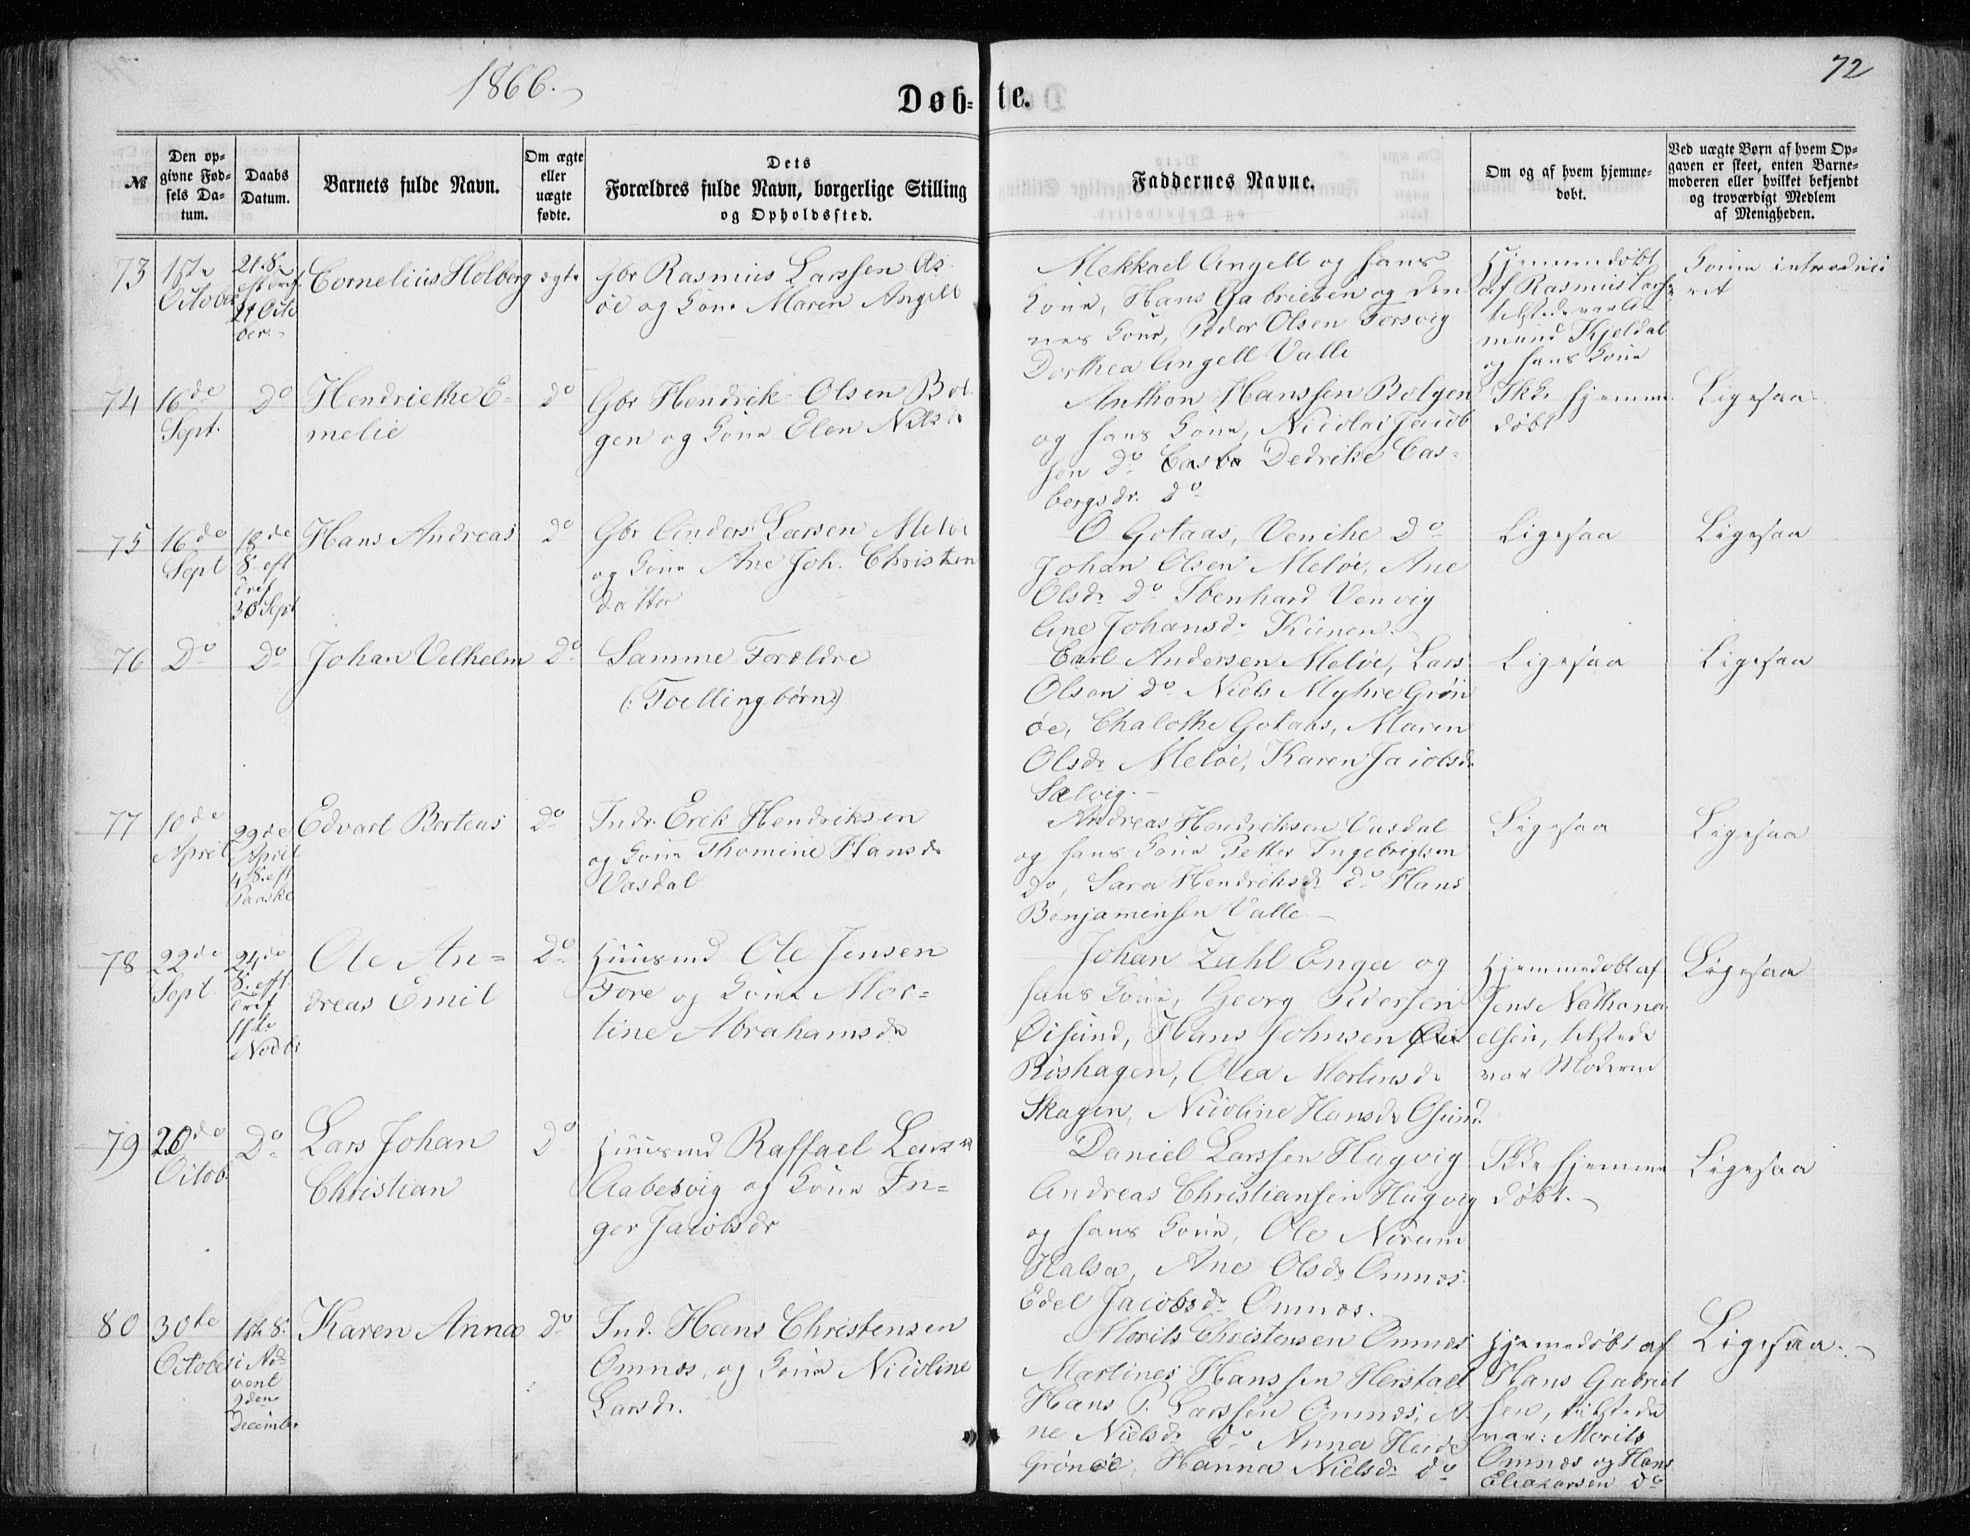 1866.
72
Døb-te.
№
Den op-
givne Fød-
sels Da-
tum.
Daabs
Datum.
Barnets fulde Navn.
Om ægte
eller
uægte
fødte.
Dets
Forældres fulde Navn, borgerlige Stilling
og Opholdssted.
Faddernes Navne.
Om og af hvem hjemme-
døbt.
Ved uægte Børn af hvem Op-
gaven er skeet, enten Barne-
moderen eller hvilket bekjendt
og troværdigt Medlem
af Menigheden.
73
15de
October
21. S.
21 Octo
ber.
Cornelius Holberg
ægte
Gbr Rasmus Larssen As
øe og Kone Maren Angell
Mekkael Angell og hans
Kone, Hans Gabrielsen og den-
nes Kone, Peder Olsen Forsvig
Dorthea Angell Valle
Hjemmedøbt
af Rasmus Lars
tilstede var
mund Kjeldal
og hans Kone
Konen introduce
ret
74
16de
Sept.
Do
Hendriethe E-
melie
Do
Gbr Hendrik Olsen Bol
gen og Kone Elen Nilsd
Anthon Hanssen Bolgen
og hans Kone, Nicolai Jacob
sen Do Dedrike Cas-
bergsdr. Do
Ikke hjemme
døbt
Ligesaa
75
16de
Sept
18de
S. eft
Tref
30 Sept
Hans Andreas
Do
Gbr Anders Larsen Meløe
og Kone Ane Joh. Christen
datter
O Gotaas, Venike Do
Johan Olsen Meløe, Ane
Olsdr Do Ibenhard Venvig
Ane Johansdr Kunen.
Ligesaa
Ligesaa
76
Do
Do
Johan Velhelm
Do
Samme Forældre
(: Tvellingbørn :)
Carl Andersen Meløe, Lars
Olsen Do Niels Myhre Grøn
øe, Chalothe Gotaas, Maren
Olsdr Meløe, Karen Jacobsdr
Selvig.
Ligesaa
Ligesaa
77
10de
April
22de
April
4 S. eft
Paaske
Edvart Berteus
Do
Indr. Erik Hendriksen
og Kone Thomine Hansdr
Vasdal
Andreas Hendriksen Vasdal
og hans Kone Petter Ingebrigtsen
Do, Sara Hendriksdr Do Hans
Benjaminsen Valle.
Ligesaa
Ligesaa
78
22de
Sept
24de
S. eft
Tref
11te
Novbr
Ole An-
dreas Emil
Do
Huusmd Ole Jensen
Fore og Kone Mor-
tine Abrahamsdr
Johan Zahl Enga og
hans Kone, Georg Pedersen
Øisund, Hans Johnsen
Rishagen, Olea Mortensdr
Skagen, Nicoline Hansdr Øsund.
Hjemmedøbt af
Jens Nathana
elsen, tilstede
var Moderen
Ligesaa
79
20de
Octob
Do
Lars Johan
Christian
Do
Huusmd Raffael Lars
Aabelsvig og Kone In-
ger Jacobsdr
Daniel Larssen Hugvig
Andreas Christiansen Hugvig
og hans Kone, Ole Norum
Halsa, Ane Olsdr Omnæs
Edel Jacobsdr Omnæs.
Ikke hjemme
døbt.
Ligesaa
80
30te
October
1ste S.
i Ad-
vent
9den
December
Karen Anna
Do
Ind. Hans Christensen
Omnæs, og Kone Nicoline
Larsdr.
Morits Christensen Omnæs
Martines Hanssen Herstad
Hans P. Larssen Omnæs, A-
ne Nielsdr Do Anna Heide
Grønøe, Hanna Nielsdr Do
Hjemmedøbt af
Hans Gabriel
sen, tilstede
var: Morits
Omnæs og Hans
Eleazarsen Do
Ligesaa.